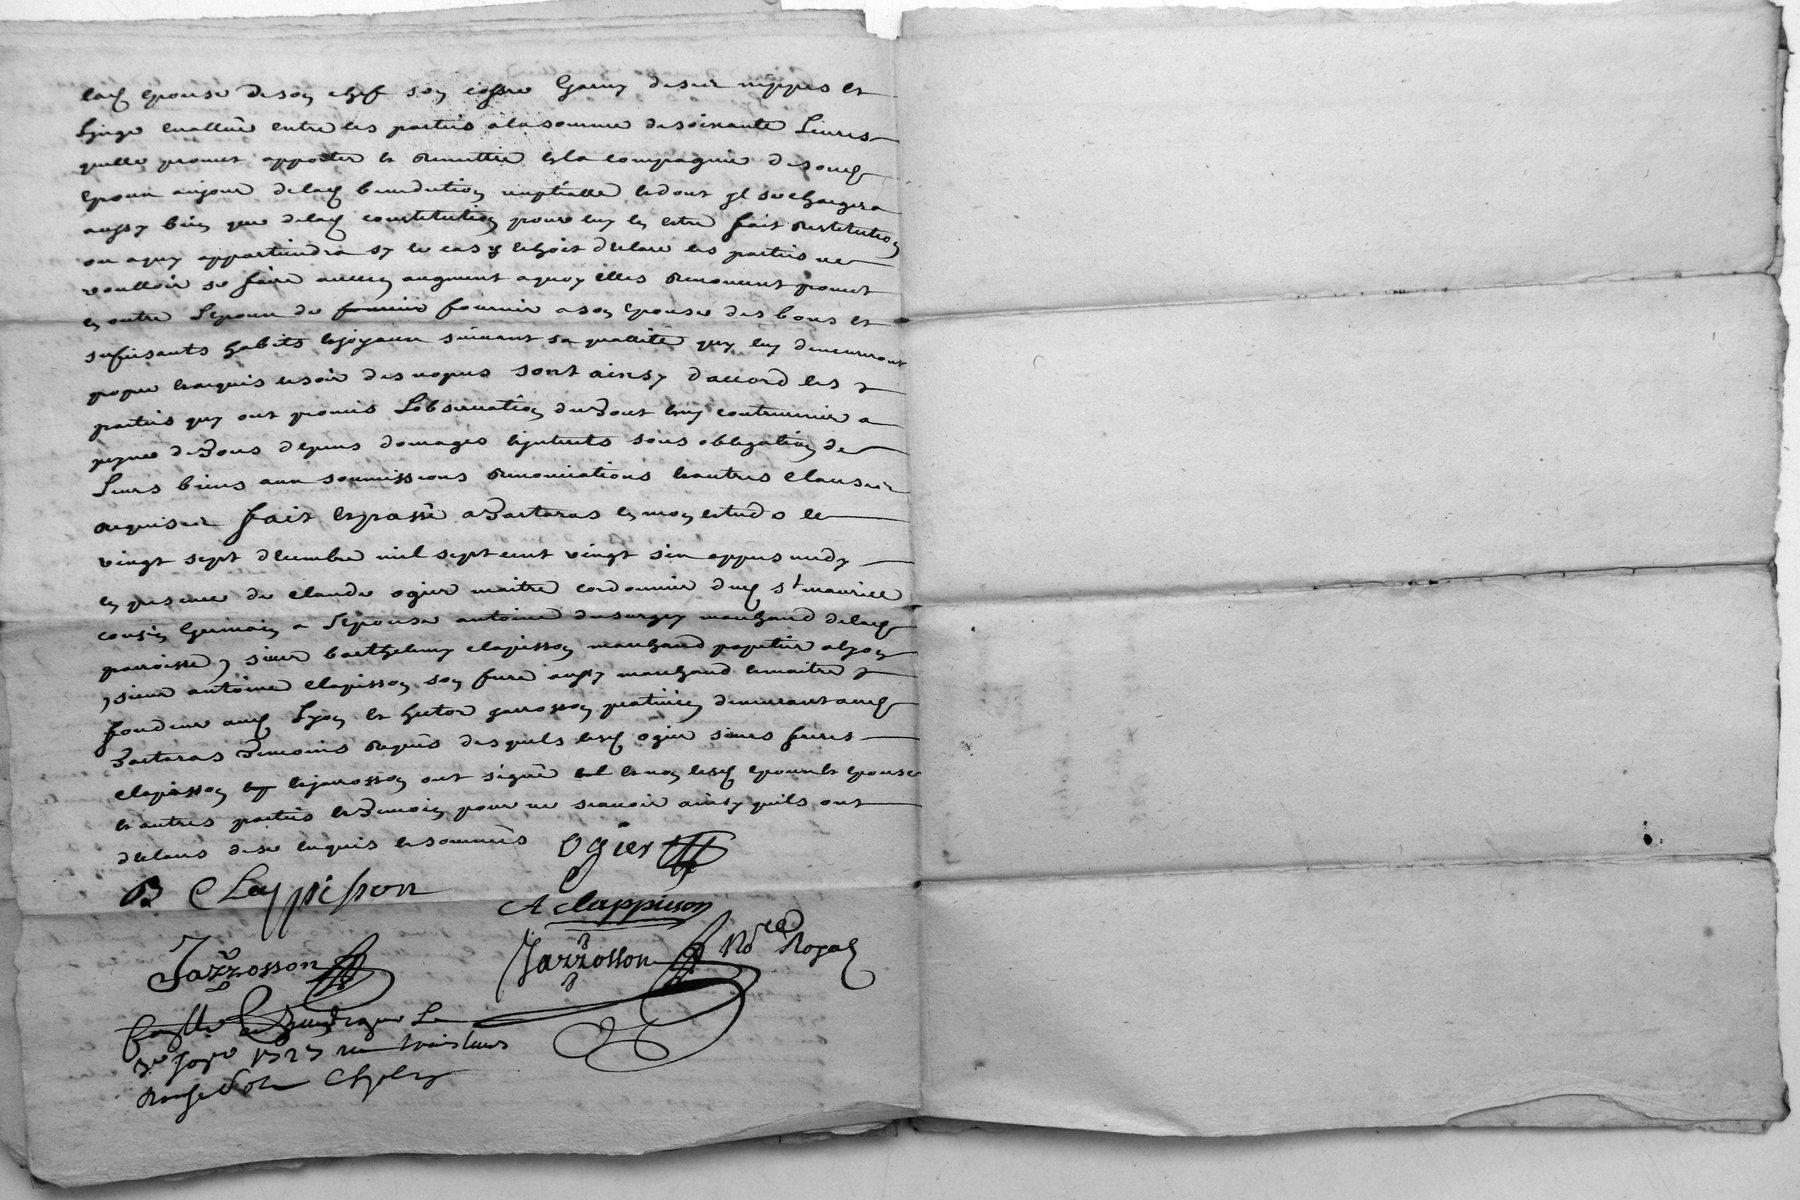 lad epouse de son chef son coffre garny de ses nippes et
linge evallué entre les parties a la somme de soixante livres
quelle promet apporter et remettre en la compagnie de sond
epoux au jour de lad benediction nuptialle et dont il se chargera
aussy bien que de lad constitution pour luy en estre fait restitution
ou a quy appartiendra sy le cas y echoit declare les parties ne
voulloir se faire aucun augment a quoy elles renoncent promet
en outre l'epoux de fournir fournir a son epouse des bons et
sufisants habits et joyaux suivant sa quallité quy luy demeureront
propre et acquis le soir des nopces sont ainsy d'accord les
parties quy ont promis l'observation du tout et ny contrevenir a
peyne de tous depens domages et interets sous obligation de
leurs biens aux soumissions renonciations et autres clauses
requises fait et passé a Tartaras en mon etude le
vingt sept decembre mil sept cent vingt six appres midy
en presence de claude ogier maitre cordonnier dud st maurice
cousin germain a l'epouse antoine dusurgey marchand de lad
parroisse, sieur barthelemy clapisson marchand papetier a lyon
, sieur antoine clapisson son frere aussy marchand et maitre
fondeur aud Lyon et hector jarrosson praticien demeurant aud
Tartaras temoins requis desquels lesd ogier sieurs freres
clapisson et jarrosson ont signé et non lesd epoux et epouse
et autres parties et temoin pour ne scavoir ainsy quils ont
declaré de ce enquis et sommés Ogier
B Clappisson
A clappisson
Jarrosson
Jarrosson No^re Royal
Con^llé
3e 1727